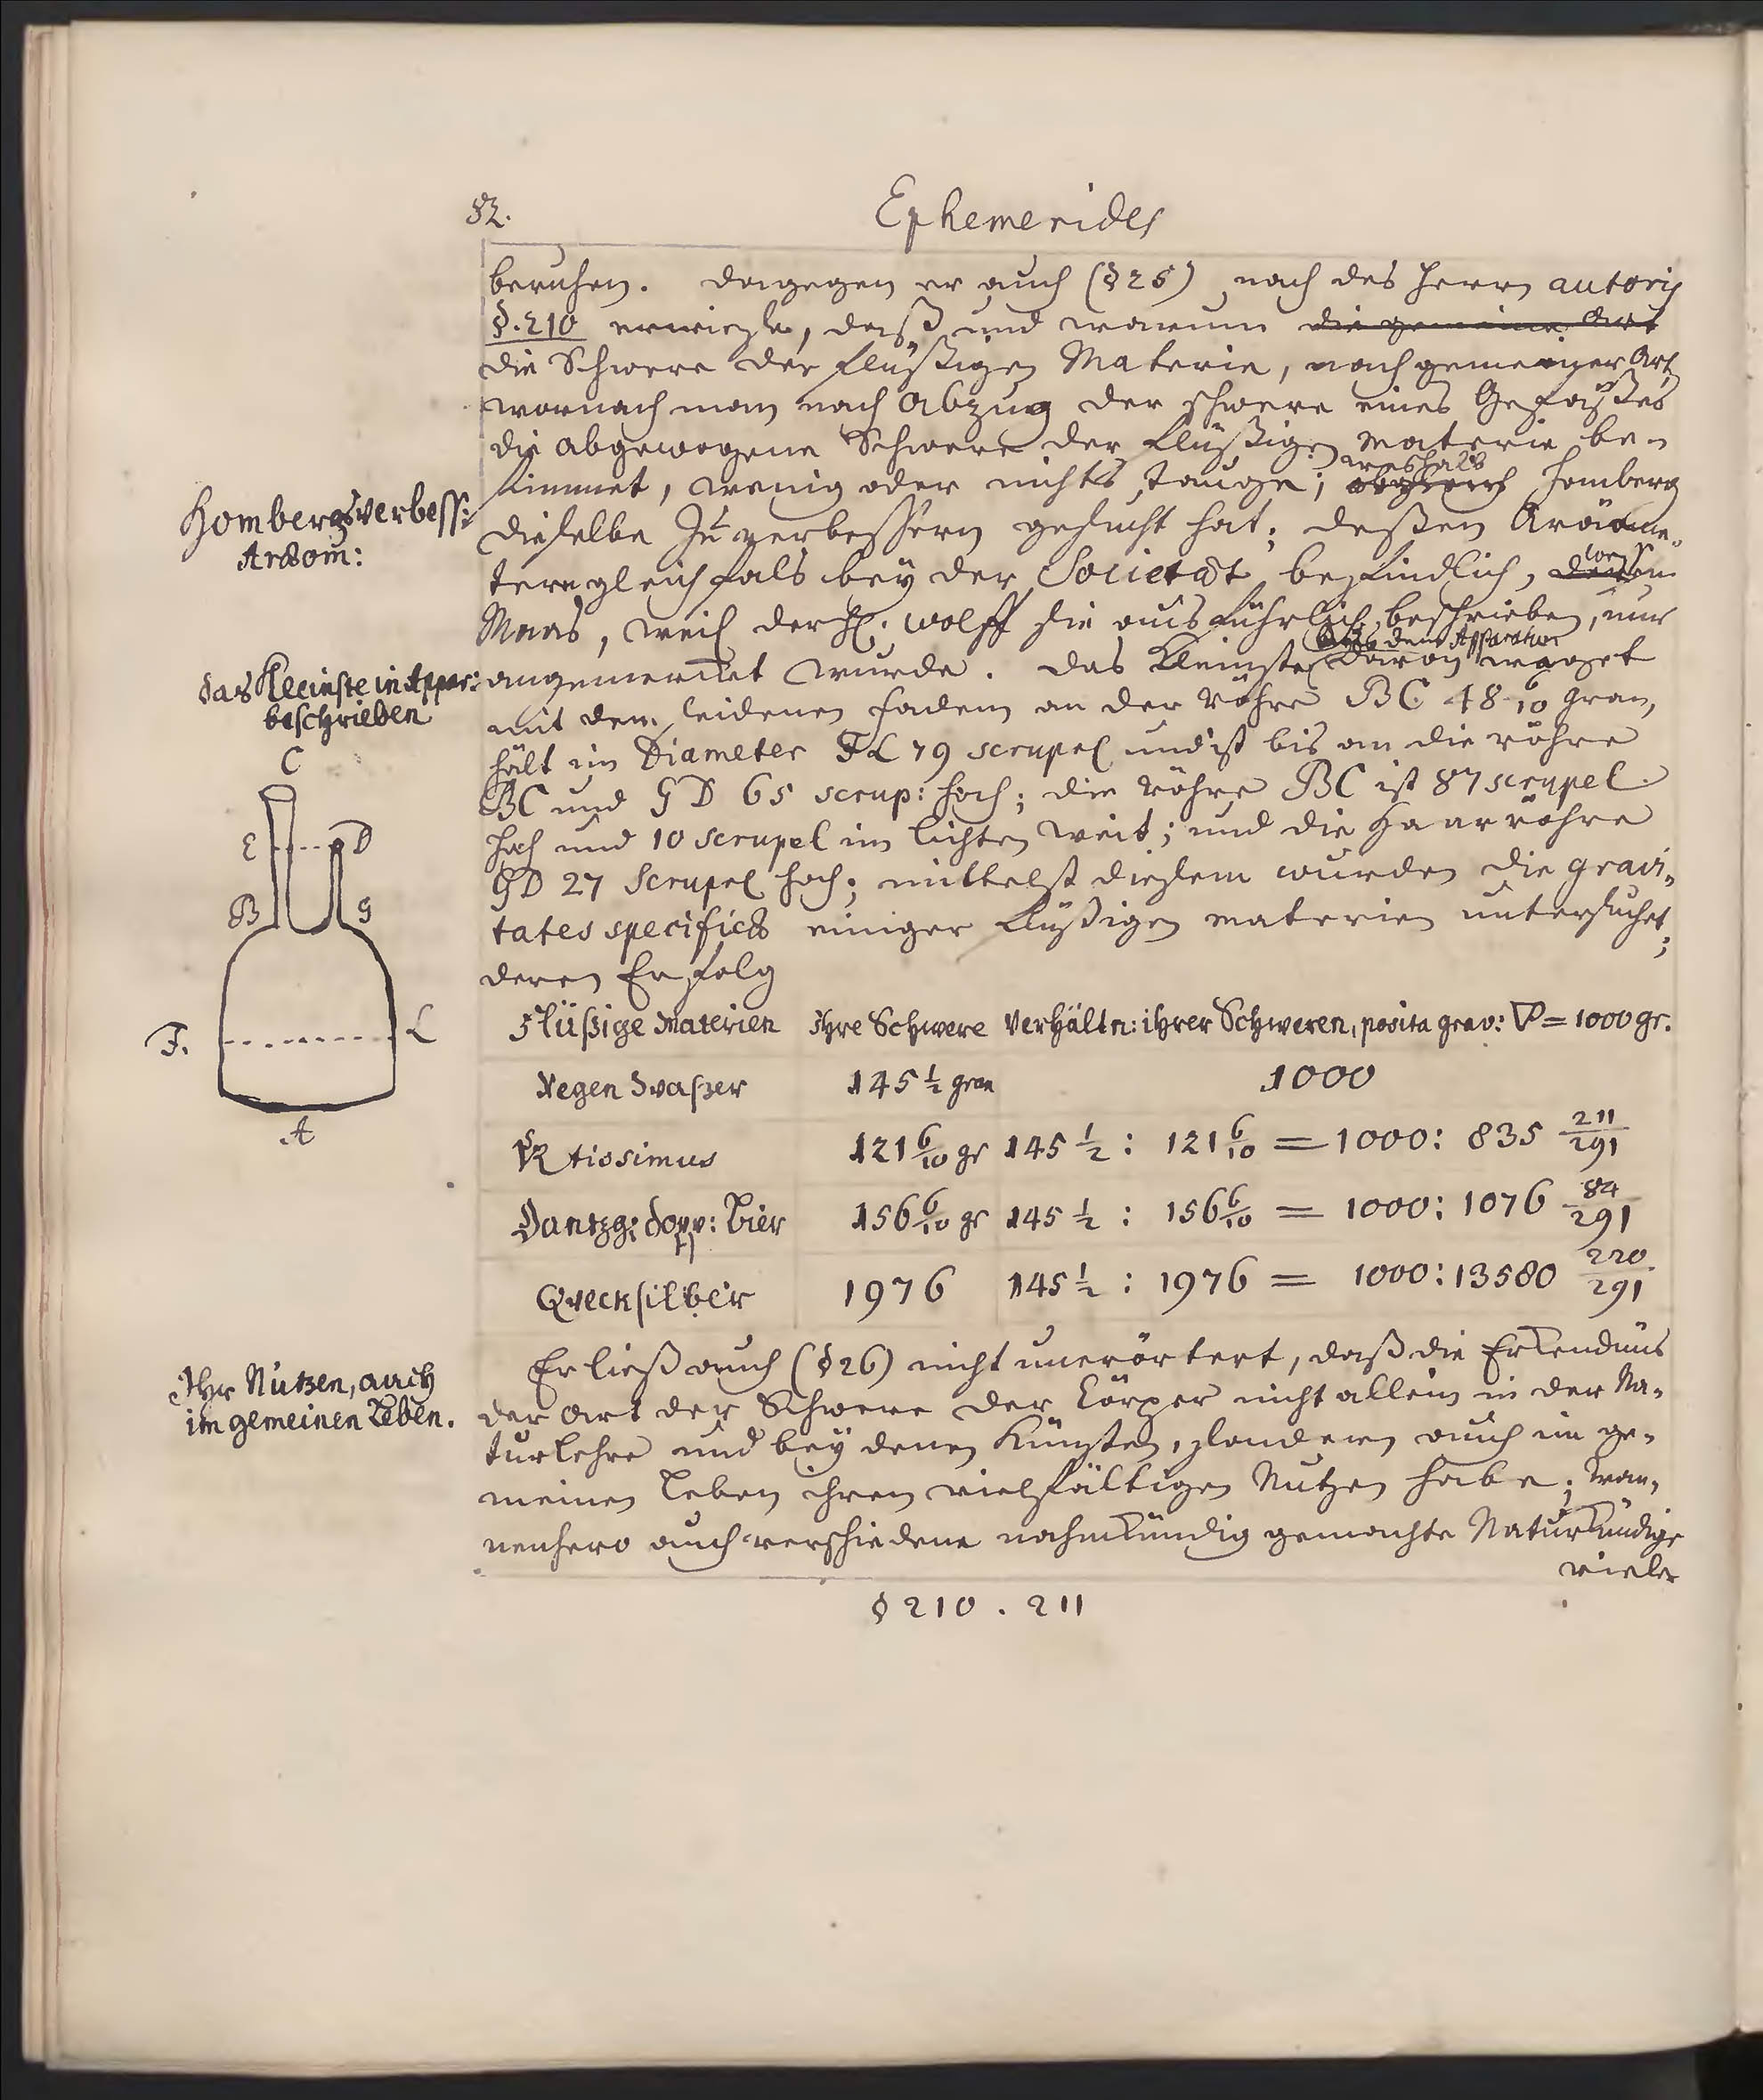 82.
Ephemerides
beruhen. dagegen er auch (§ 25) nach des Herrn autoris
§. 210 erwiese, daß und warum die gemeine Art
die Schwere der flüßigen Materie, nach gemeiner Art,
wornach man nach Abzug der schwere eines Gefäßes
die abgewogene Schwere der flüßigen materie be-
stimmet, wenig oder nichts tauge; weshals Homberg
Hombergs verbess:
Aræom:
dieselbe zu verbessern gesucht hat; deßen Aräome-
tere gleichfals bey der Societæt befindlich, deßen
Maas, weil der H. Wolff sie ausführlich beschrieben, nur
angemercket wurde. das Kleinste davon wäget
dem Apparatur
das Kleinste in Appar:
beschrieben
mit dem seidenen Faden an der röhre BC 48 6/10 gran,
hält im Diameter FL 79 scrupel und ist bis an die röhre
BC und GD 65 scrup: hoch; die röhre BC ist 87 scrupel
hoch und 10 scrupel im lichten weit; und die Haarröhre
GD 27 Scrupel hoch; mittelst diesem wurden die gravi-
tates specificas einiger flüßigen materien untersuchet;
deren Erfolg
C
E D
B G
F. L
A
Flüßige Materien Ihre Schwere Verhältn: ihrer Schweren, posita grav: ▽ = 1000 gr.
Regen Waßer 145 1/2 gran 1000
tissimus 121 6/10 gr 145 1/2 : 121 6/10 = 1000 : 835 211/291
Dantzg: dopp: Bier 156 6/10 gr 145 1/2 : 156 6/10 = 1000 : 1076 84/291
Qvecksilber 1976 145 1/2 : 1976 = 1000 : 13580 220/291
Er ließ auch (§ 26) nicht unerörtert, daß die Erkendnüs
der Art der Schwere der Cörper nicht allein in der Na-
turlehre und bey denen Künsten, sondern auch im ge-
meinen Leben ihren vielfältigen Nutzen habe; wan-
nenhero auch verschiedene nahmkündig gemachte Naturkündige
viele
Ihr Nutzen, auch
im gemeinen Leben.
§ 210. 211